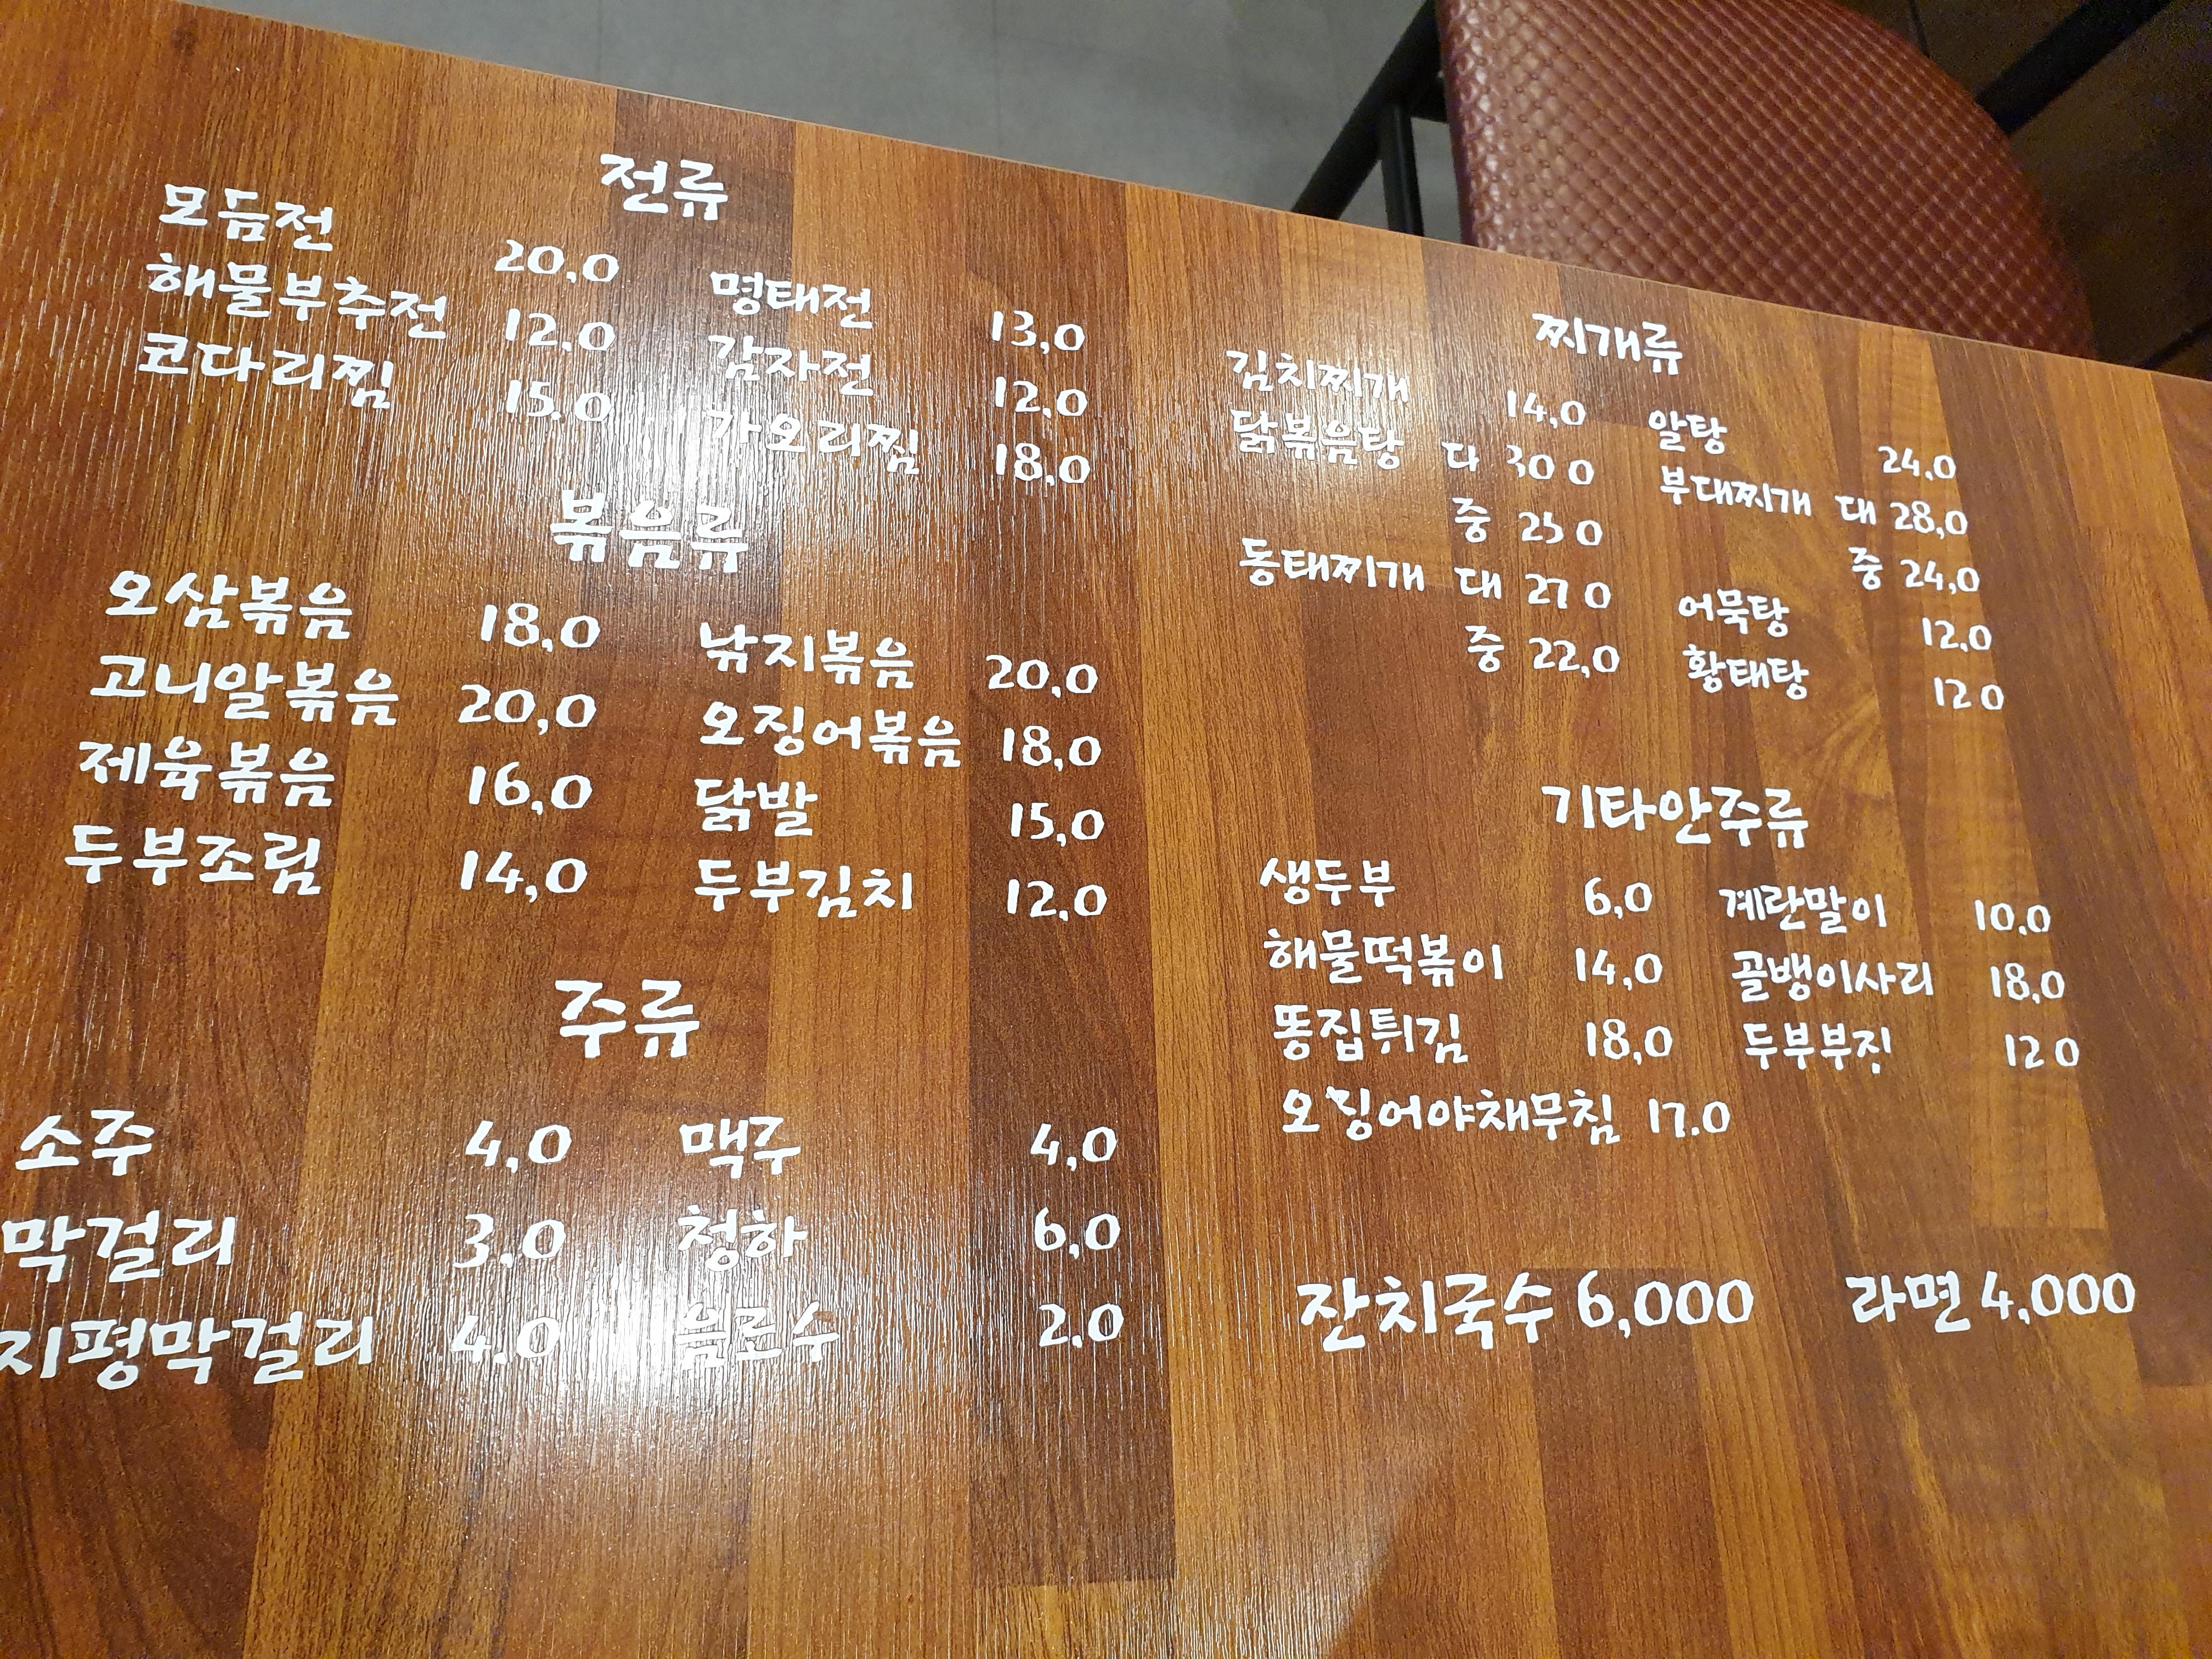 전류
모듬전 20,0 명태전 13,0
해물부추전 12,0 감자전 12,0
코다리찜 15,0 가오리찜 18,0
볶음류
오삼볶음 18,0 낚지볶음 20,0
고니알볶음 20,0 오징어볶음 18,0
제육볶음 16,0 닭발 15,0
두부조림 14,0 두부김치 12,0
주류
소주 4,0 맥주 4,0
막걸리 3,0 청하 6,0
지평막걸리 4,0 음료수 2,0
찌개류
김치찌개 14,0 알탕 24,0
닭볶음탕 다 30 0 부대찌개 대 28,0
중 25 0 중 24,0
동태찌개 대 27 0 어묵탕 12,0
중 22,0 황태탕 12 0
기타안주류
생두부 6,0 계란말이 10,0
해물떡볶이 14,0 골뱅이사리 18,0
똥집튀김 18,0 두부부직 12 0
오징어야채무침 17.0
잔치국수 6,000 라면 4,000